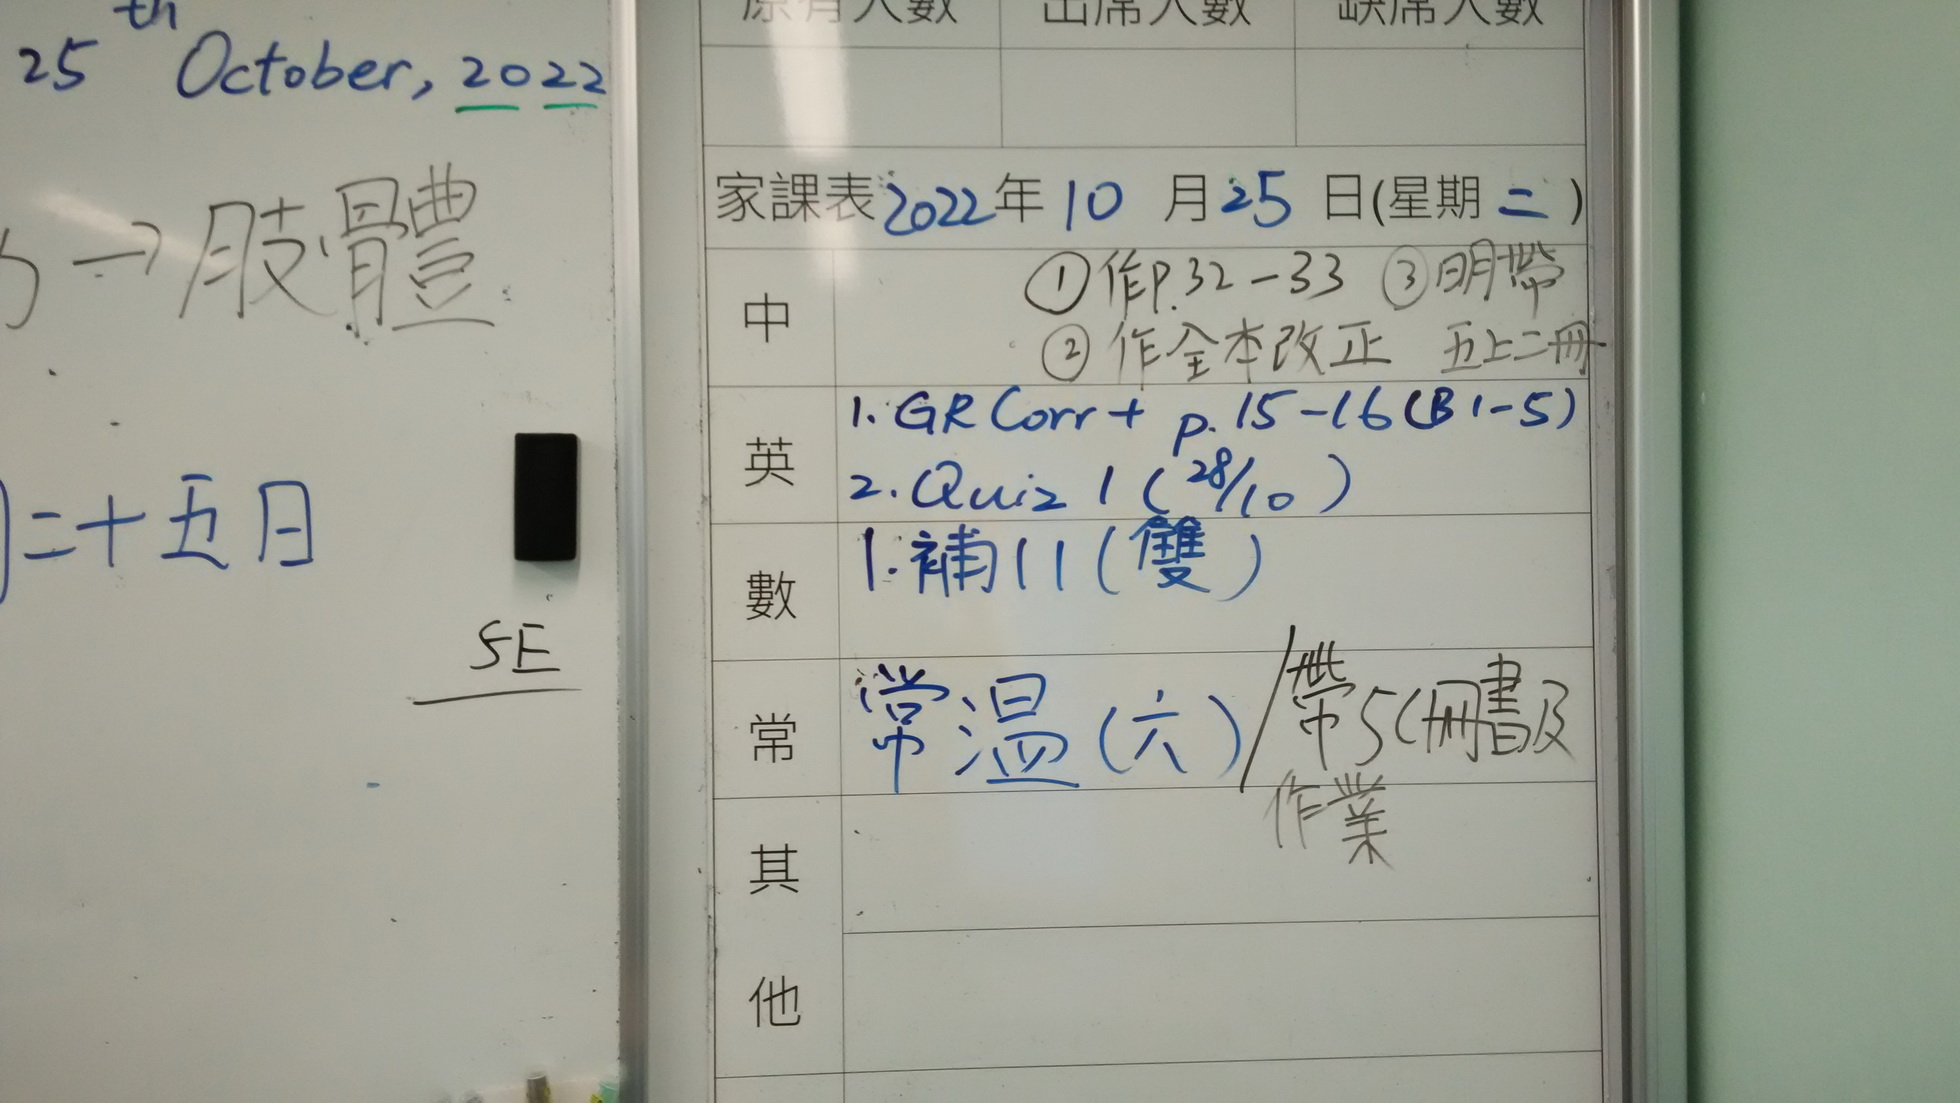 th
25 October, 2022
→肢體
二十五日
5E
原有人數 出席人數 缺席人數
家課表2022年10月25日(星期二)
中
①作P.32-33 ③明帶
②作全本改正 五上二冊
英
1. GR Corr + p.15-16(B1-5)
2. Quiz 1 (28/10)
數
1.補11(雙)
常
常溫(六)/帶5C冊書及
作業
其
他